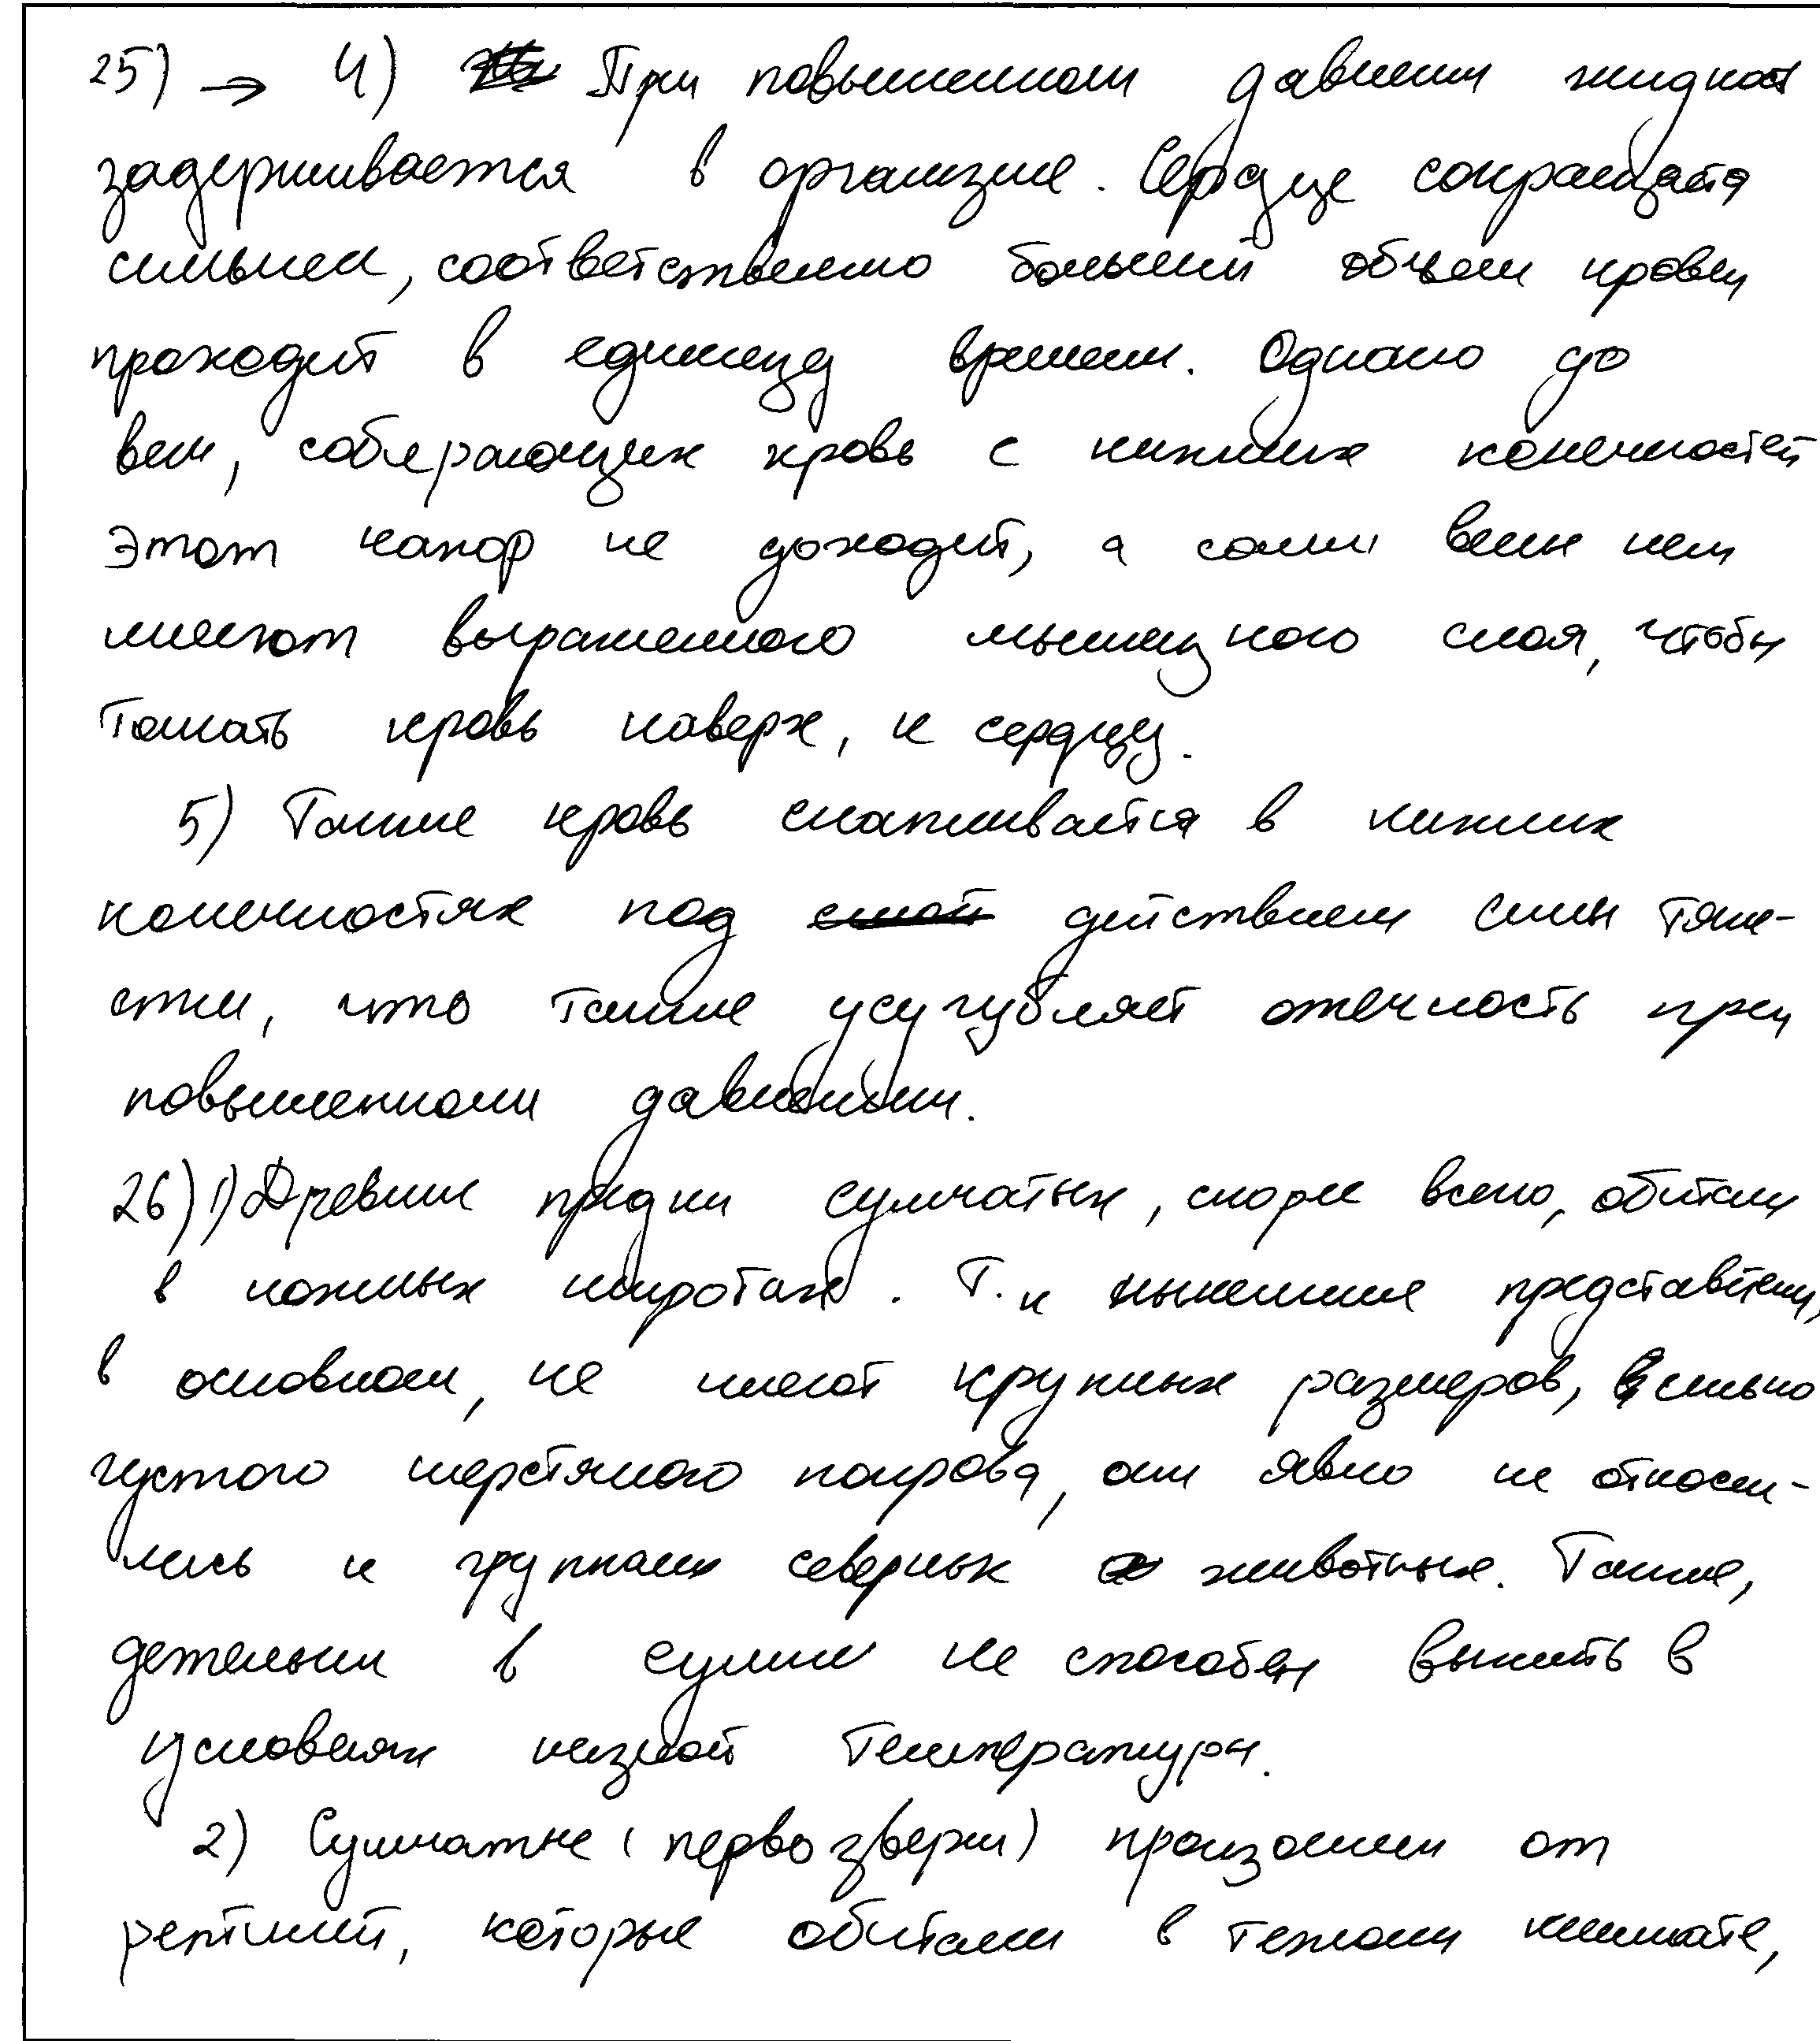 25) → 4) При повышенном давлении жидкост
задерживается в организме. Сердце сокращатя
сильнеи, соответственно больший объем крови
проходит в единицу времени. Однако до
вен, собирающих кровь с нижних конечностей
этот напор не доходит, а сами вены неи
имеют выраженного мышецного слоя, чтобы
толкать кровь наверх, к сердцу.
5) Также кровь скапливается в нижних
конечностях под действием силы тяже-
сти, что также усугубляет отечность при
повышенном давлении.
26) 1) Древние предки сумчатых, скорее всего, обитали
в южных широтах. Т.к нынешние представители,
в основном, не имеют крупных размеров, сильно
густого шерстяного покрова, они явно не относи-
лись к группам северных животных. Также,
детеныши в сумке не способен выжить в
условиях низкой температуры.
2) Сумчатые (первозвери) произошли от
рептилий, которые обитали в теплом климате,